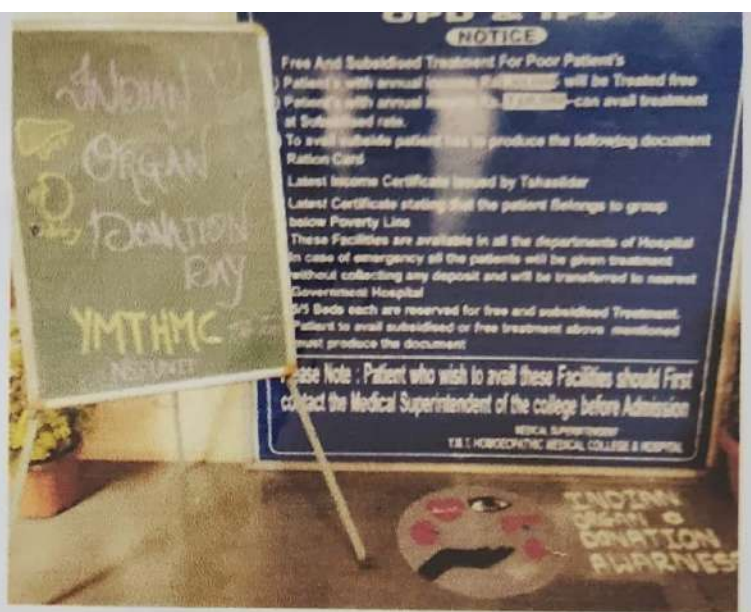 INDIAN
ORGAN
DONATION
DAY
YMTHMC
NSS UNIT
OPD & IPD
NOTICE
Free And Subsidised Treatment For Poor Patient's
Patient's with annual will be Treated free
Patient's with annual can avail treatment
at Subsidised rate.
To avail subside patient has to produce the following document
Ration Card
Latest Income Certificate issued by Tehasildar
Latest Certificate stating that the patient Belongs to group
below Poverty Line
These Facilities are available in all the departments of Hospital
In case of emergency all the patients will be given treatment
without collecting any deposit and will be transferred to nearest
Government Hospital
Beds each are reserved for free and subsidised Treatment.
Patient to avail subsidised or free treatment above mentioned
must produce the document
ase Note : Patient who wish to avail these Facilities should First
contact the Medical Superintendent of the college before Admission
MEDICAL SUPERINTENDENT
Y.M.T. HOMOEOPATHIC MEDICAL COLLEGE & HOSPITAL
INDIAN
ORGAN
DONATION
AWARNESS